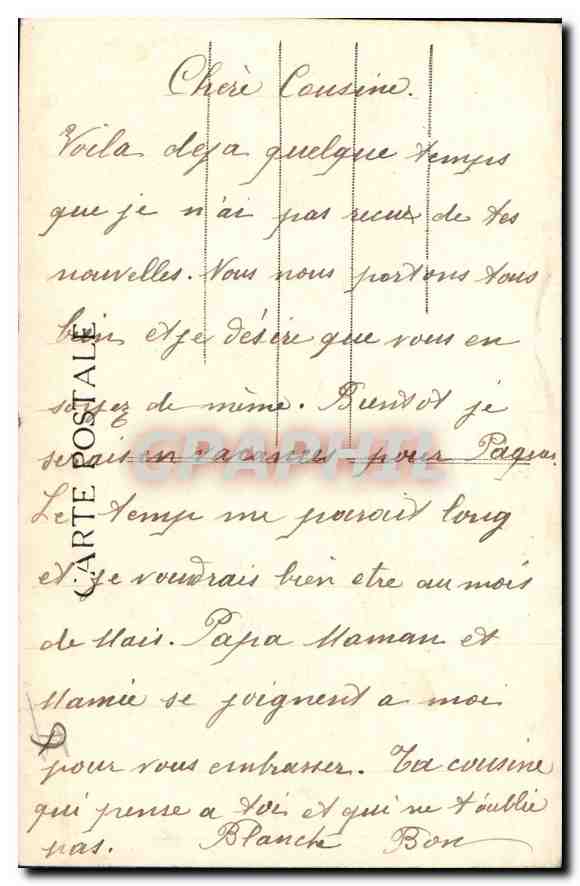 Cherè Cousine.
Voila deja quelque temps
que je n'ai pas recue de tes
nouvelles. Nous nous portons tous
bien et je désire que vous en
soyez de mème. Bientot je
serais en vacances pour Paques
Le temp me parait long
et je voudrais bien etre au mois
de Mais. Papa Maman et
Mamie se joignent a moi
pour vous embrasser. Ta cousine
qui pense a toi et qui ne t'oublie
pas. Blanche Bon
CARTE POSTALE
CPAPHIL